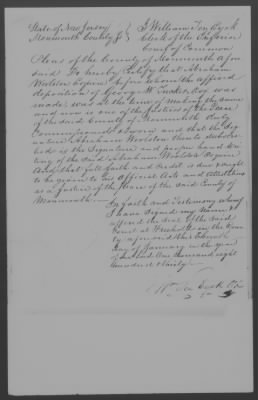 State of New Jersey
Monmouth County Ss
I William Ten Eyck
Clerk of the Inferior
Court of Common
Pleas of the County of Monmouth afore
said Do hereby Certify that Abraham
Woolston Esquire before whom the afore
deposition of George W. Tucker Esq was
made, was at the time of making the same
and now is one of the Justices of the Peace
of the said County of Monmouth duly
Commissioned & sworn and that the Sig
nature Abraham Woolston thereto subscri
bed is the Signature and proper hand wri
ting of the said Abraham Woolston Esquire
And that full faith and credit is due & ought
to be given to his Official Acts and attestations
as a Justice of the Peace of the said County of
Monmouth
In faith and Testimony whereof
I have signed my Name &
affixed the Seal of the said
Court at Freehold in the Coun
ty aforesaid this Eleventh
day of January in the year
of our Lord One thousand eight
hundred & thirty
Wm Ten Eyck Clk